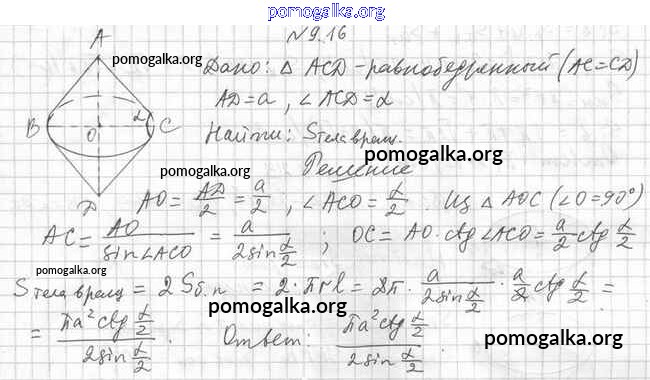 pomogalka.org
№9.16
A
pomogalka.org
Дано: △ ACD - равнобедренный (AC=CD)
AD=a, ∠ACD=α
B O α C
Найти: Sтела вращ.
pomogalka.org
pomogalka.org
Решение
D
AO = AD/2 = a/2, ∠ACO = α/2. Из △ AOC (∠O=90°)
AC = AO/sin∠ACO = a/(2sin α/2); OC = AO·ctg∠ACO = a/2 ctg α/2
pomogalka.org
Sтела вращ = 2Sб.п = 2·πrl = 2π · a/(2sin α/2) · a/2 ctg α/2 =
pomogalka.org
= πa² ctg α/2 / (2sin α/2). Ответ: πa² ctg α/2 / (2sin α/2).
pomogalka.org